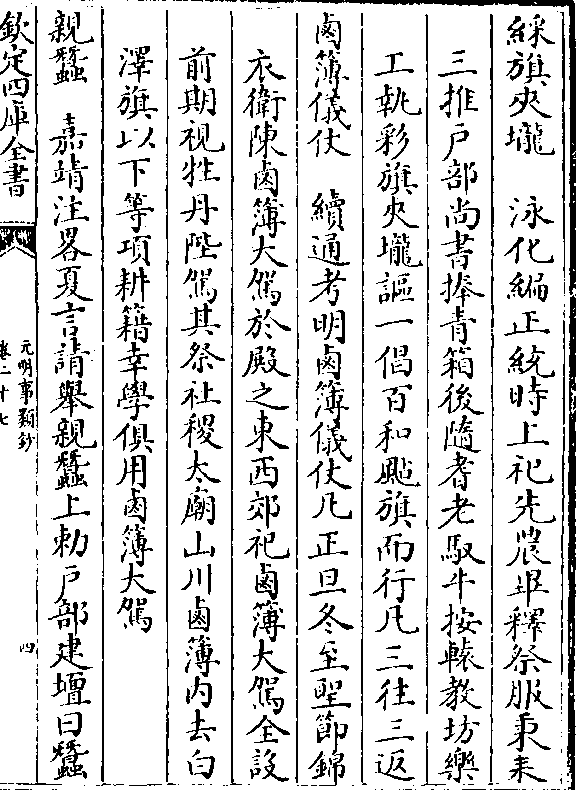 綵旗夾壠　泳化編正統時上祀先農畢釋祭服秉耒
三推戸部尚書捧青箱後隨耆老馭牛按轅教坊樂
工執彩旗夾壠謳一倡百和颭旗而行凡三往三返
鹵簿儀仗　續通考明鹵簿儀仗凡正旦冬至聖節錦
衣衛陳鹵簿大駕於殿之東西郊祀鹵簿大駕全設
前期視牲丹陛駕其祭社稷太廟山川鹵簿内去白
澤旗以下等項耕籍幸學俱用鹵簿大駕
親蠶　嘉靖注畧夏言請舉親蠶上勅戸部建壇曰蠶
欽定四庫全書
元明事類鈔
卷二十七
四